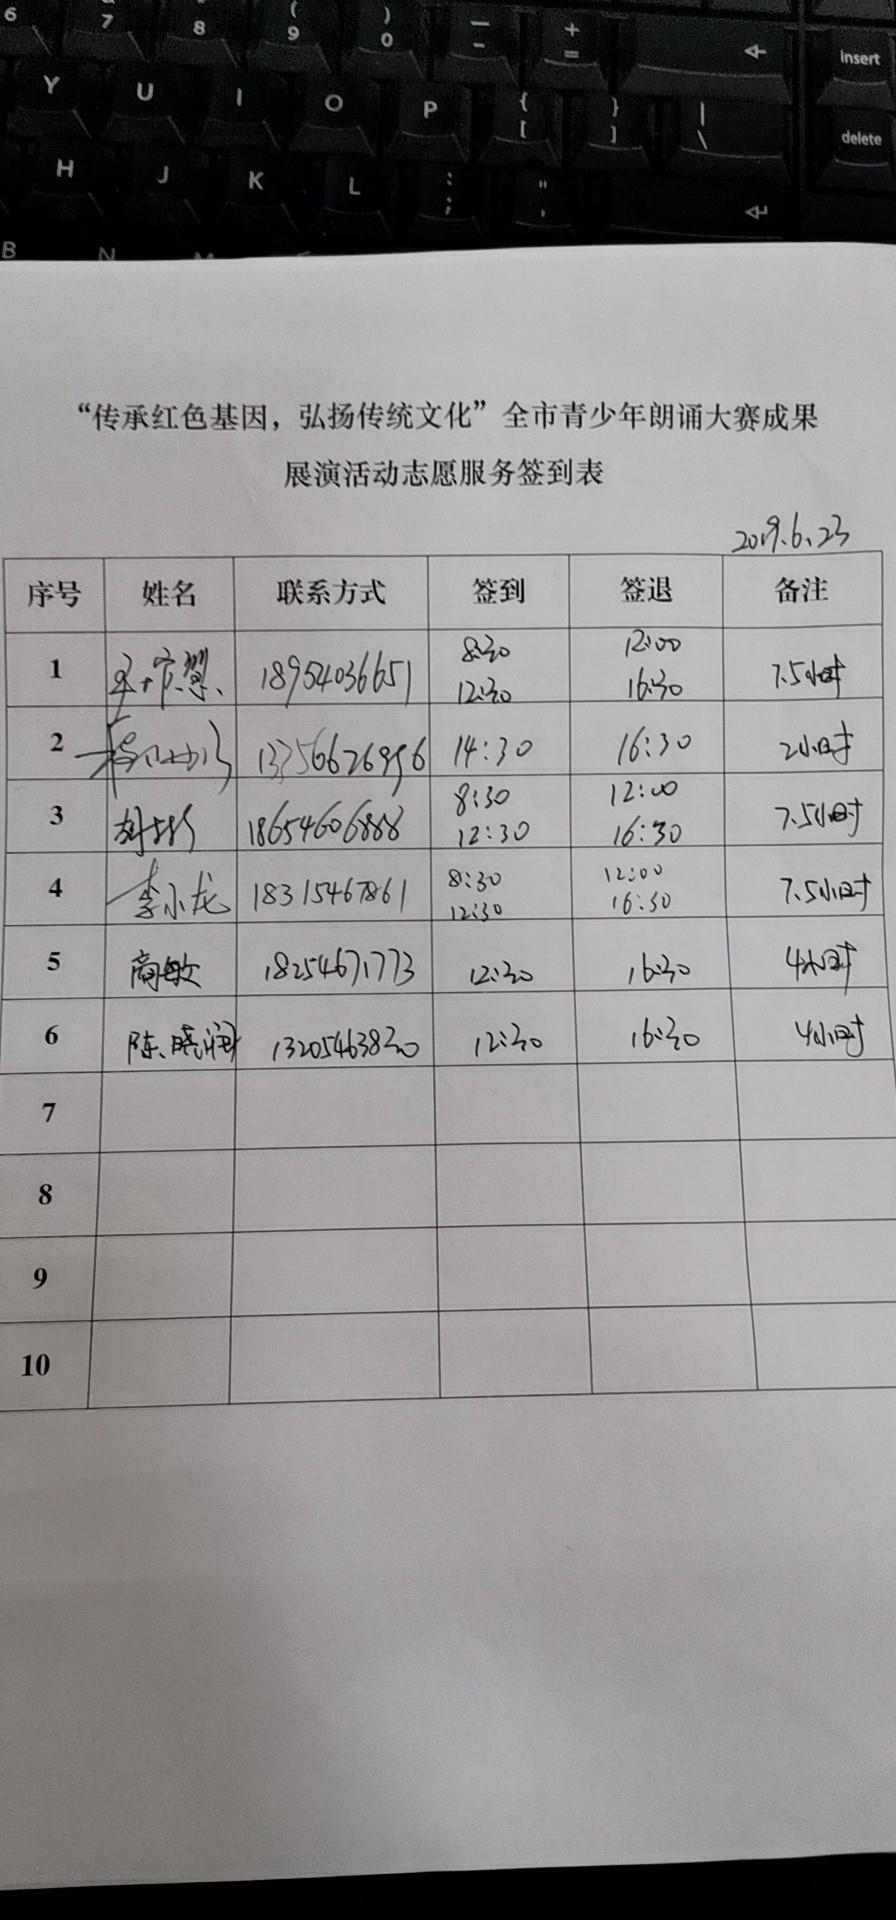 6 7 8 ( 9 ) 0 — - + = insert
Y U I O P { [ } ] | \ delete
H J K L : ; " '
B N M
“传承红色基因，弘扬传统文化”全市青少年朗诵大赛成果
展演活动志愿服务签到表
2019.6.23
序号 姓名 联系方式 签到 签退 备注
1 18954036651 8:30 12:00 7.5小时
12:30 16:30
2 14:30 16:30 2小时
3 18654606888 8:30 12:00 7.5小时
12:30 16:30
4 李小龙 18315467861 8:30 12:00 7.5小时
12:30 16:30
5 商敏 18254671773 12:30 16:30 4小时
6 陈晓润 13205463830 12:30 16:30 4小时
7
8
9
10